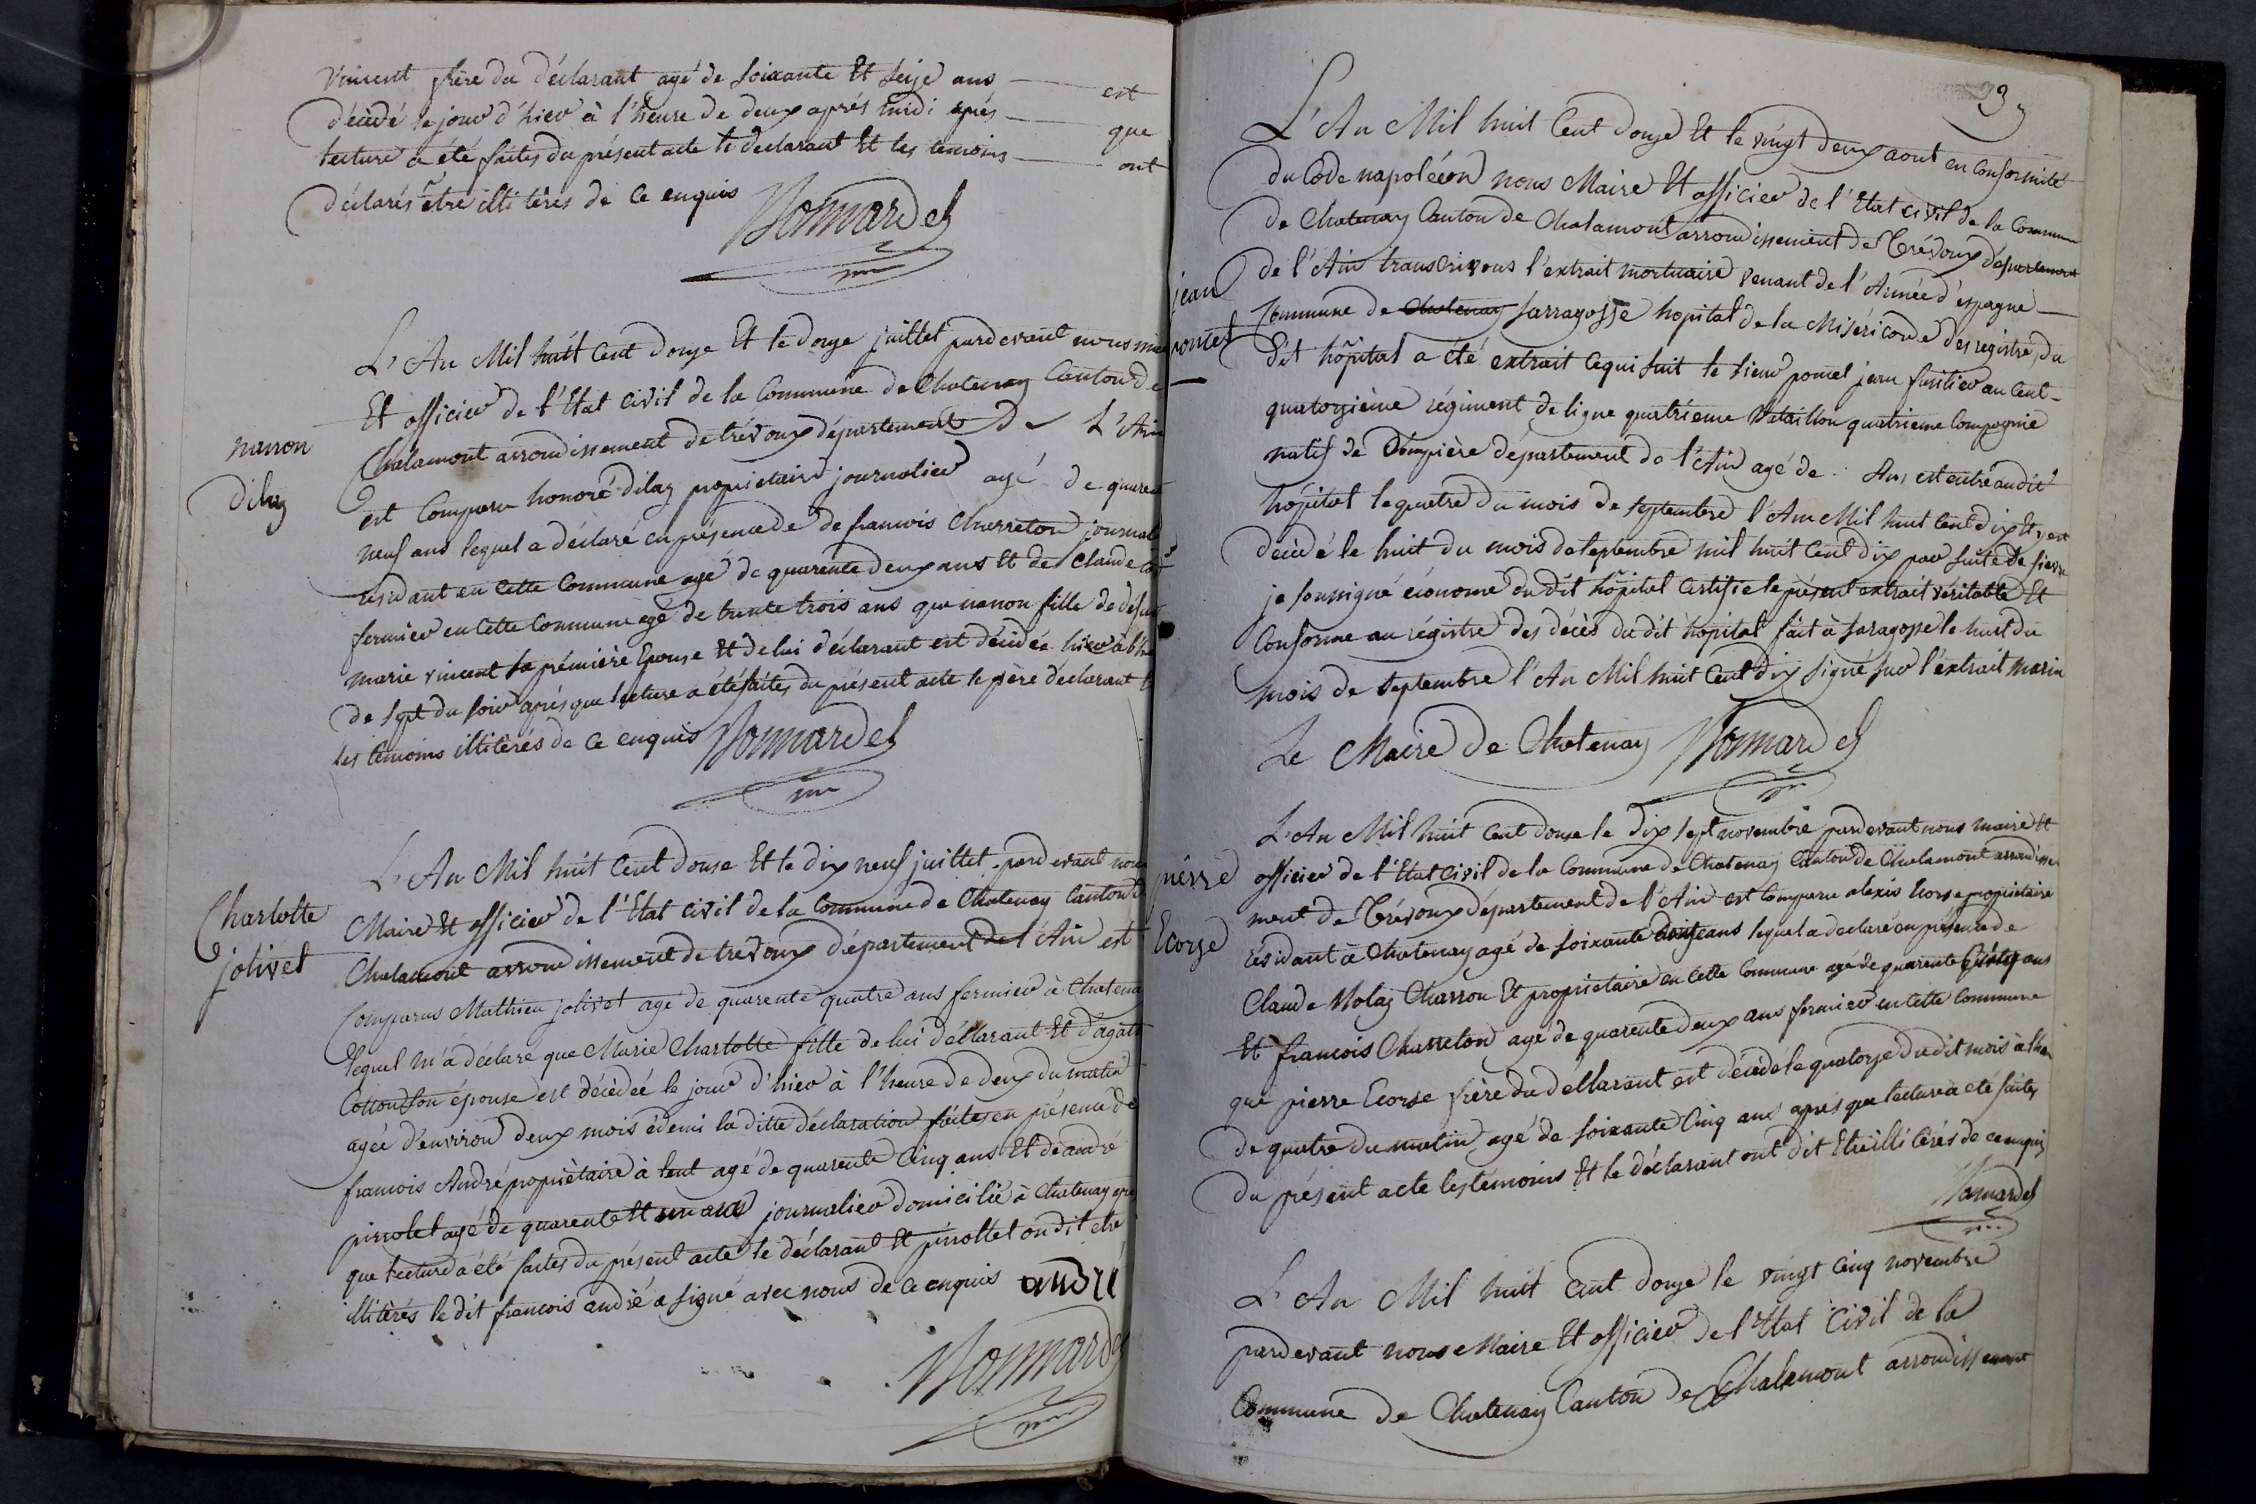 Vincent frère du déclarant agé de soixante Et seize ans est
décédé le jour d'hier à l'heure de deux aprés midi aprés que
lecture a été faites du présent acte le déclarant Et les temoins ont
déclarés être illitérés de ce enquis Bonnardel
nanon
dilas
L'An Mil huit Cent douze Et le douze juillet pardevant nous
Et officier de l'Etat civil de la Commune de Chatenay Canton de
Chalamont arrondissement de trévoux département de L'Ain
est Comparu honoré dilas propriétaire journalier agé de quarente
neuf ans lequel a déclaré en présence de de francois Charreton
residant en cette Commune agé de quarente deux ans Et de Claude
fermier en Cette Commune agé de trente trois ans que nanon fille de
marie vincent sa prémière Epouse Et de lui déclarant est décédée hier à
de sept du soir aprés que lecture a été faites du présent acte le père déclarant
les temoins illitérés de ce enquis Bonnardel
Charlotte
jolivet
L'An Mil huit Cent douze Et le dix neuf juillet pardevant nous
Maire Et officier de l'Etat civil de la Commune de Chatenay Canton de
Chalamont arrondissement de trévoux département de l'Ain est
Comparus Mathieu jolivet agé de quarente quatre ans fermier à Chatenay
lequel m'a déclaré que Marie Charlotte fille de lui déclarant Et d'agathe
son épouse est décédée le jour d'hier à l'heure de deux du matin
agée d'environ deux mois édemi la ditte déclaration faites en présence de
francois André propriètaire à lent agé de quarente Cinq ans Et de andré
pirrolet agé de quarente Et un ans journalier domicilié à Chatenay
que lecture a été faites du présent acte le déclarant Et pirrollet on dit etre
illitérés le dit francois andré a signé avec nous de ce enquis andré
Bonnardel
93
jean
poncet
L'An Mil huit Cent douze Et le vingt deux aout en Conformité
du Code napoléon nous Maire Et officier de l'Etat civil de la Commune
de Chatenay Canton de Chalamont arrondissement de Trévoux département
de l'Ain transcrivons l'extrait mortuaire venant de l'Armée d'espagne
Commune de Chatenay sarragosse hopital de la Miséricorde des registre du
dit hôpital a été extrait ce qui suit le sieur poncet jean fusilier au Cent
quatorzième régiment de ligne quatrième Bataillon quatrieme Compagnie
natif de Dompière département de l'Ain agé de .. Ans est entré au dit
hôpital le quatre du mois de septembre l'An Mil huit Cent dix Et y est
décédé le huit du mois de septembre mil huit Cent dix par suite de fievre
je soussigné économe du dit hôpital Certifie le présent extrait véritable Et
Conforme au régistre des décès du dit hôpital fait à saragosse le huit du
mois de septembre l'An Mil huit Cent dix signé sur l'extrait Marin
Le Maire de Chatenay Bonnardel
pierre
Ecorse
L'An Mil huit Cent douze le dix sept novembre pardevant nous maire Et
officier de l'Etat civil de la Commune de Chatenay Canton de Chalamont arrondisse
ment de Trévoux département de l'Ain est Comparu alexis Ecorse propriétaire
résidant à Chatenay agé de soixante ans lequel a déclaré en présence de
Claude Charron Et propriétaire en Cette Commune agé de quarente ans
Et francois Charreton agé de quarente deux ans fermier en Cette Commune
que pierre Ecorse frère du déclarant est décédé le quatorze du dit mois à
de quatre du matin agé de soixante Cinq ans aprés que lecture a été faites
du présent acte les témoins Et le déclarant ont dit Etre illitérés de ce enquis
Bonnardel
L'An Mil huit Cent douze le vingt Cinq novembre
pardevant nous Maire Et officier de l'Etat Civil de la
Commune de Chatenay Canton de Chalamont arrondissement